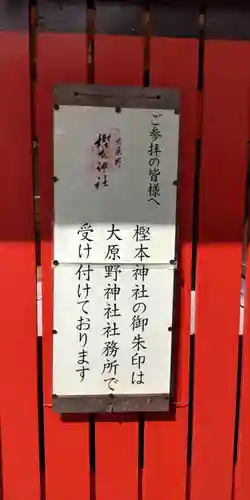 ご参拝の皆様へ
大原野
樫本神社
樫本神社の御朱印は
大原野神社社務所で
受け付けております